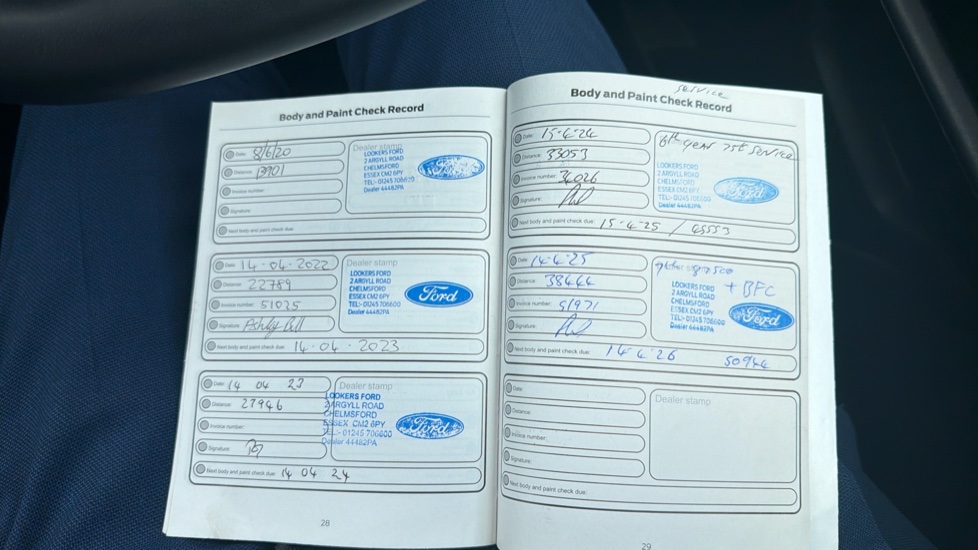 Body and Paint Check Record
Date: 8/6/20
Distance:
Invoice number:
Signature:
Next body and paint check due:
Dealer stamp
LOOKERS FORD
2 ARGYLL ROAD
CHELMSFORD
ESSEX CM2 6PY
TEL:- 01245 706600
Dealer 44482PA
Ford
Date: 14-04-2022
Distance: 22789
Invoice number: 51025
Signature:
Next body and paint check due: 14-04-2023
Dealer stamp
LOOKERS FORD
2 ARGYLL ROAD
CHELMSFORD
ESSEX CM2 6PY
TEL:- 01245 706600
Dealer 44482PA
Ford
Date: 14 04 23
Distance: 27946
Invoice number:
Signature:
Next body and paint check due: 14 04 24
Dealer stamp
LOOKERS FORD
2 ARGYLL ROAD
CHELMSFORD
ESSEX CM2 6PY
TEL:- 01245 706600
Dealer 44482PA
Ford
28
service
Body and Paint Check Record
Date: 15-4-24
Distance: 33053
Invoice number: 34026
Signature:
Next body and paint check due: 15-4-25 / 45553
6th year service
LOOKERS FORD
2 ARGYLL ROAD
CHELMSFORD
ESSEX CM2 6PY
TEL:- 01245 706600
Dealer 44482PA
Ford
Date: 14-4-25
Distance: 38444
Invoice number: 51971
Signature:
Next body and paint check due: 14-4-26 50944
+ BFC
LOOKERS FORD
2 ARGYLL ROAD
CHELMSFORD
ESSEX CM2 6PY
TEL:- 01245 706600
Dealer 44482PA
Ford
Date:
Distance:
Invoice number:
Signature:
Next body and paint check due:
Dealer stamp
29